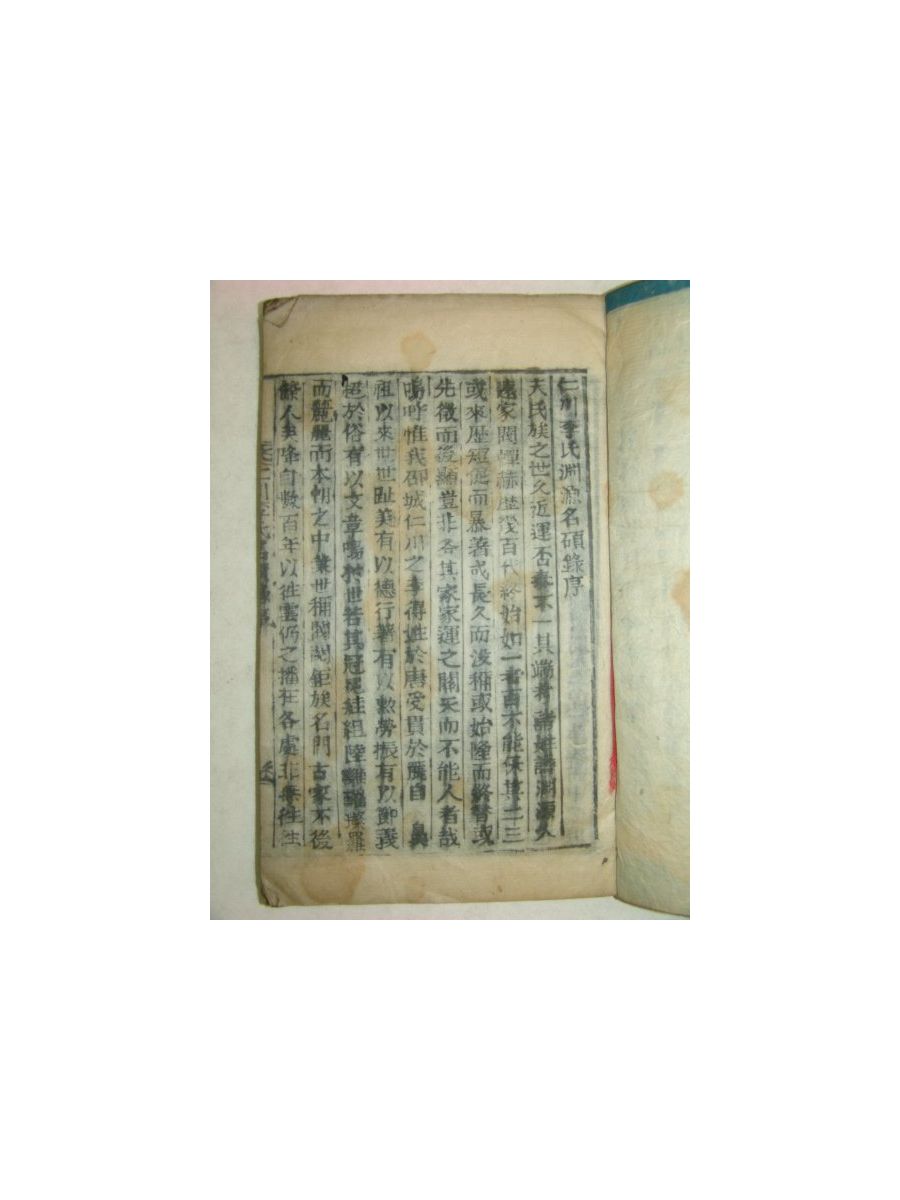 仁川李氏淵源名碩錄序
夫氏族之世久近運否泰不一其端考諸姓譜淵源久
遠家閥蟬赫歷幾百代終始如一者百不能保其二三
或來歷短促而暴著或長久而沒稱或始隆而終替或
先微而後顯豈非各其家家運之關天而不能人者哉
嗚呼惟我邵城仁川之李得姓於唐受貫於麗自 鼻
祖以來世世趾美有以德行著有以勲勞振有以節義
於俗有以文章鳴於世若其冠冕珪組陸離璀璨羅
而麗麗而本朝之中業世稱閥閱鉅族名門古家不後
於人矣降自數百年以往雲仍之播在各處非無往往